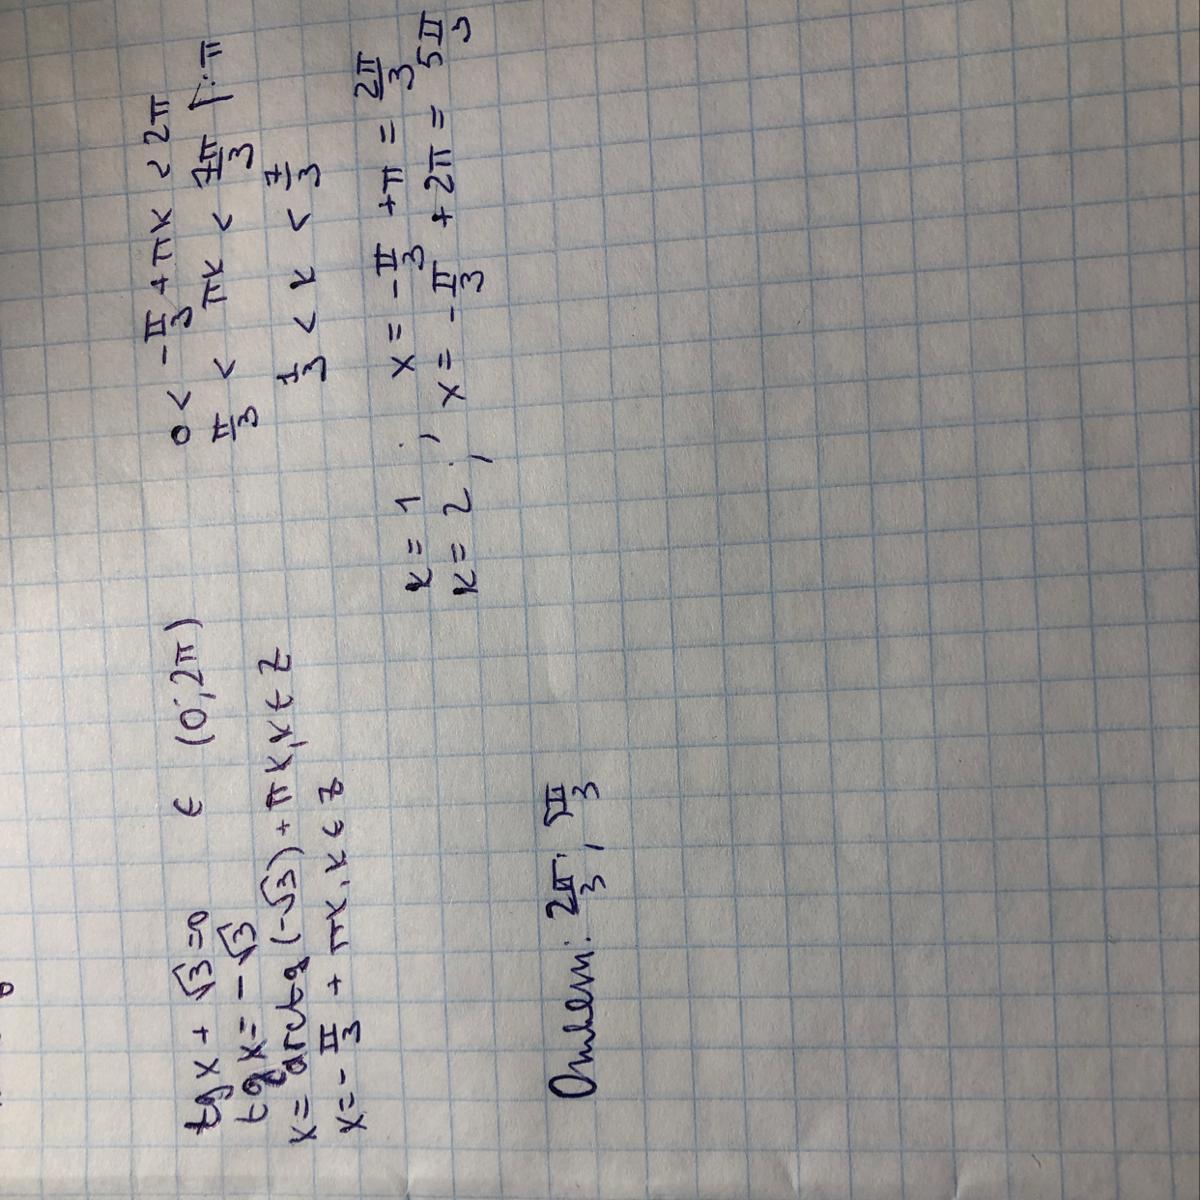 tg x + √3 = 0 ∈ (0; 2π)
tg x = - √3
x = arctg (-√3) + πk, k ∈ Z
x = - π/3 + πk, k ∈ Z
0 < - π/3 + πk < 2π
π/3 < πk < 7π/3 |: π
1/3 < k < 7/3
k = 1 ; x = - π/3 + π = 2π/3
k = 2 ; x = - π/3 + 2π = 5π/3
Ответ: 2π/3 ; 5π/3